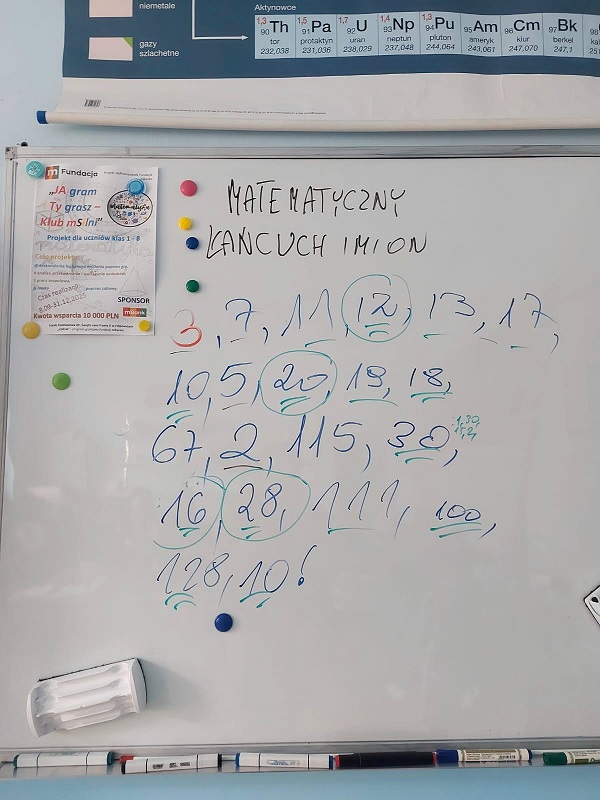 niemetale
gazy
szlachetne
Aktynowce
1,3 90 Th tor 232,038
1,5 91 Pa protaktyn 231,036
1,7 92 U uran 238,029
1,4 93 Np neptun 237,048
1,3 94 Pu pluton 244,064
95 Am ameryk 243,061
96 Cm kiur 247,070
97 Bk berkel 247,1
98
m Fundacja
„JA gram
Ty grasz –
Klub mSilni”
Projekt dla uczniów klas 1 - 8
Cele projektu:
Czas realizacji:
8.09-31.12.2025
SPONSOR
mBank
Kwota wsparcia 10 000 PLN
MATEMATYCZNY
ŁAŃCUCH IMION
3, 7, 11, 12, 13, 17,
10, 5, 20, 19, 18,
67, 2, 115, 30,
16, 28, 111, 100,
128, 10!